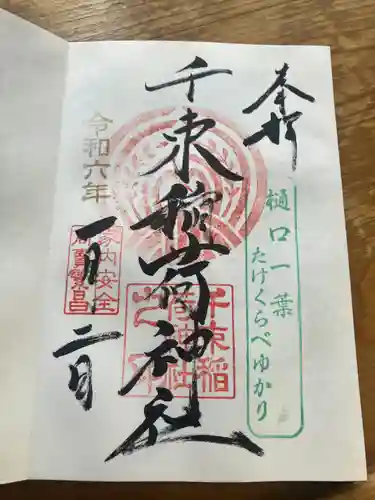 奉拝
樋口一葉
たけくらべゆかり
千束稲荷神社
令和六年
一月二日
家内安全
商売繁昌